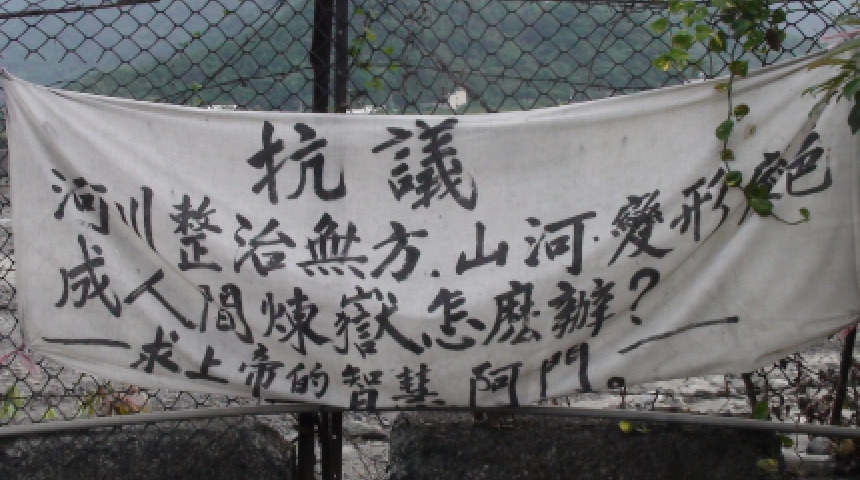 抗議
河川整治無方.山河.變形色
成人間煉嶽怎麼辦?
—求上帝的智慧 阿門。—